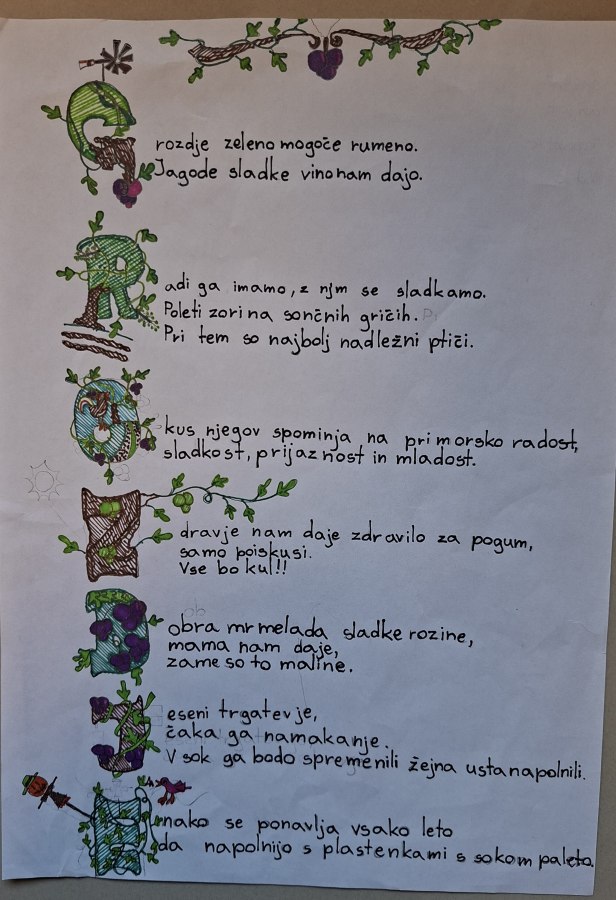 Grozdje zeleno mogoče rumeno.
Jagode sladke vino nam dajo.
Radi ga imamo, z njm se sladkamo.
Poleti zori na sončnih gričih.
Pri tem so najbolj nadležni ptiči.
Okus njegov spominja na primorsko radost,
sladkost, prijaznost in mladost.
Zdravje nam daje zdravilo za pogum,
samo poiskusi.
Vse bo kul!!
Dobra mrmelada sladke rozine,
mama nam daje,
zame so to maline.
Jeseni trgatev je,
čaka ga namakanje.
V sok ga bodo spremenili žejna usta napolnili.
Enako se ponavlja vsako leto
da napolnijo s plastenkami s sokom paleto.